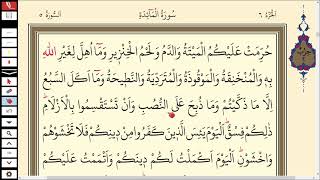 الجزء ٦ سورة المائدة السورة ٥
حُرِّمَتْ عَلَيْكُمُ الْمَيْتَةُ وَالدَّمُ وَلَحْمُ الْخِنْزِيرِ وَمَا أُهِلَّ لِغَيْرِ اللّٰهِ
بِهِ وَالْمُنْخَنِقَةُ وَالْمَوْقُوذَةُ وَالْمُتَرَدِّيَةُ وَالنَّطِيحَةُ وَمَا أَكَلَ السَّبُعُ
إِلَّا مَا ذَكَّيْتُمْ وَمَا ذُبِحَ عَلَى النُّصُبِ وَأَنْ تَسْتَقْسِمُوا بِالْأَزْلَامِ
ذٰلِكُمْ فِسْقٌ اَلْيَوْمَ يَئِسَ الَّذِينَ كَفَرُوا مِنْ دِينِكُمْ فَلَا تَخْشَوْهُمْ
وَاخْشَوْنِ اَلْيَوْمَ أَكْمَلْتُ لَكُمْ دِينَكُمْ وَأَتْمَمْتُ عَلَيْكُمْ